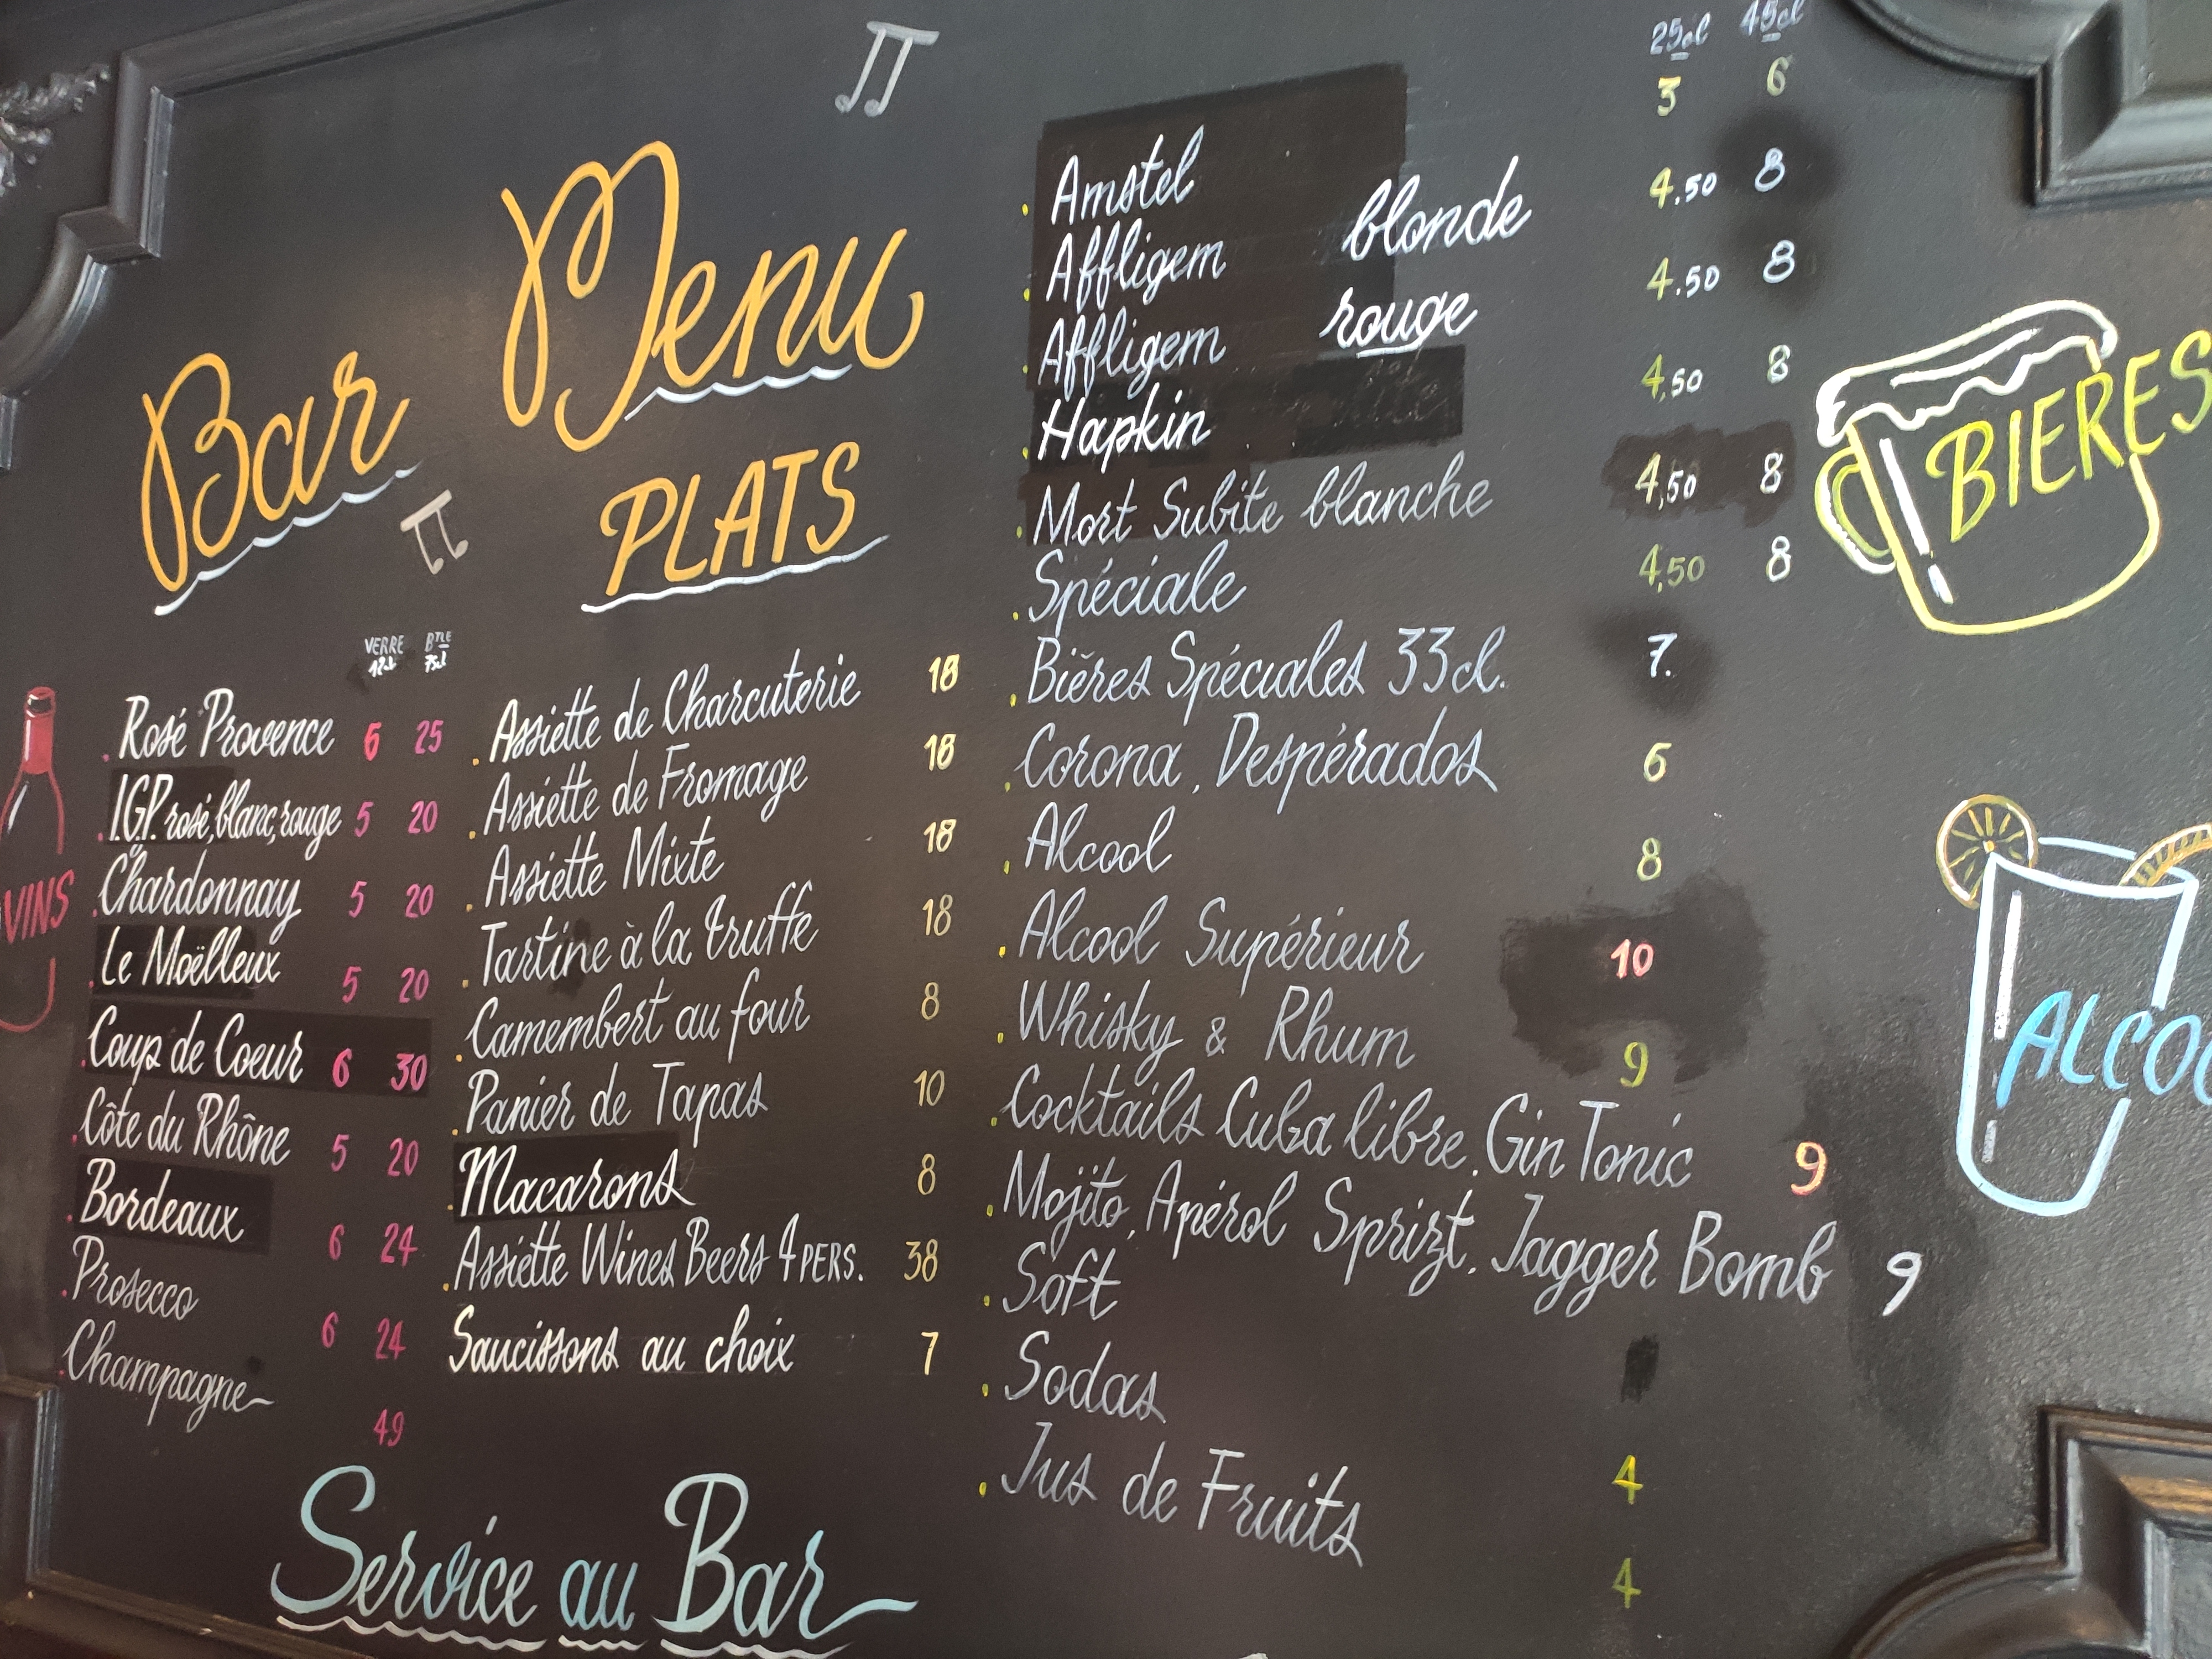 Bar Menu
PLATS
VERRE BTLE
12cl 75cl
VINS
. Rosé Provence 6 25
. I.G.P. rosé, blanc, rouge 5 20
. Chardonnay 5 20
. Le Moëlleux 5 20
. Coup de Coeur 6 30
. Côte du Rhône 5 20
. Bordeaux 6 24
. Prosecco 6 24
. Champagne 49
. Assiette de Charcuterie 18
. Assiette de Fromage 18
. Assiette Mixte 18
. Tartine à la truffe 18
. Camembert au four 8
. Panier de Tapas 10
. Macarons 8
. Assiette Wines Beers 4 PERS. 38
Saucissons au choix 7
25cl 45cl
. Amstel 3 6
. Affligem blonde 4.50 8
. Affligem rouge 4.50 8
. Hapkin 4,50 8
. Mort Subite blanche 4,50 8
. Spéciale 4,50 8
. Bières Spéciales 33cl. 7.
. Corona, Despérados 6
. Alcool 8
. Alcool Supérieur 10
. Whisky & Rhum 9
. Cocktails Cuba libre, Gin Tonic 9
. Mojito, Apérol Sprizt, Jagger Bomb 9
. Soft
. Sodas 4
. Jus de Fruits 4
BIERES
ALCOO
Service au Bar